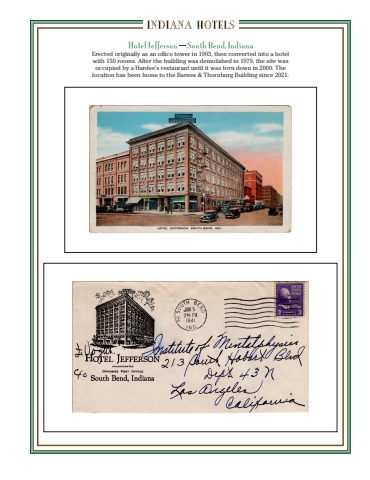 INDIANA HOTELS
Hotel Jefferson — South Bend, Indiana
Erected originally as an office tower in 1903, then converted into a hotel
with 150 rooms. After the building was demolished in 1979, the site was
occupied by a Hardee's restaurant until it was torn down in 2000. The
location has been home to the Barnes & Thornburg Building since 2021.
HOTEL JEFFERSON, SOUTH BEND, IND.
SOUTH BEND
JAN 5
PM
1941
IND.
3
HOTEL JEFFERSON
OPPOSITE POST OFFICE
South Bend, Indiana
c/o
Institute of Mentalphysics
213 South Hobart Blvd
Dept 43 N
Los Angeles
California